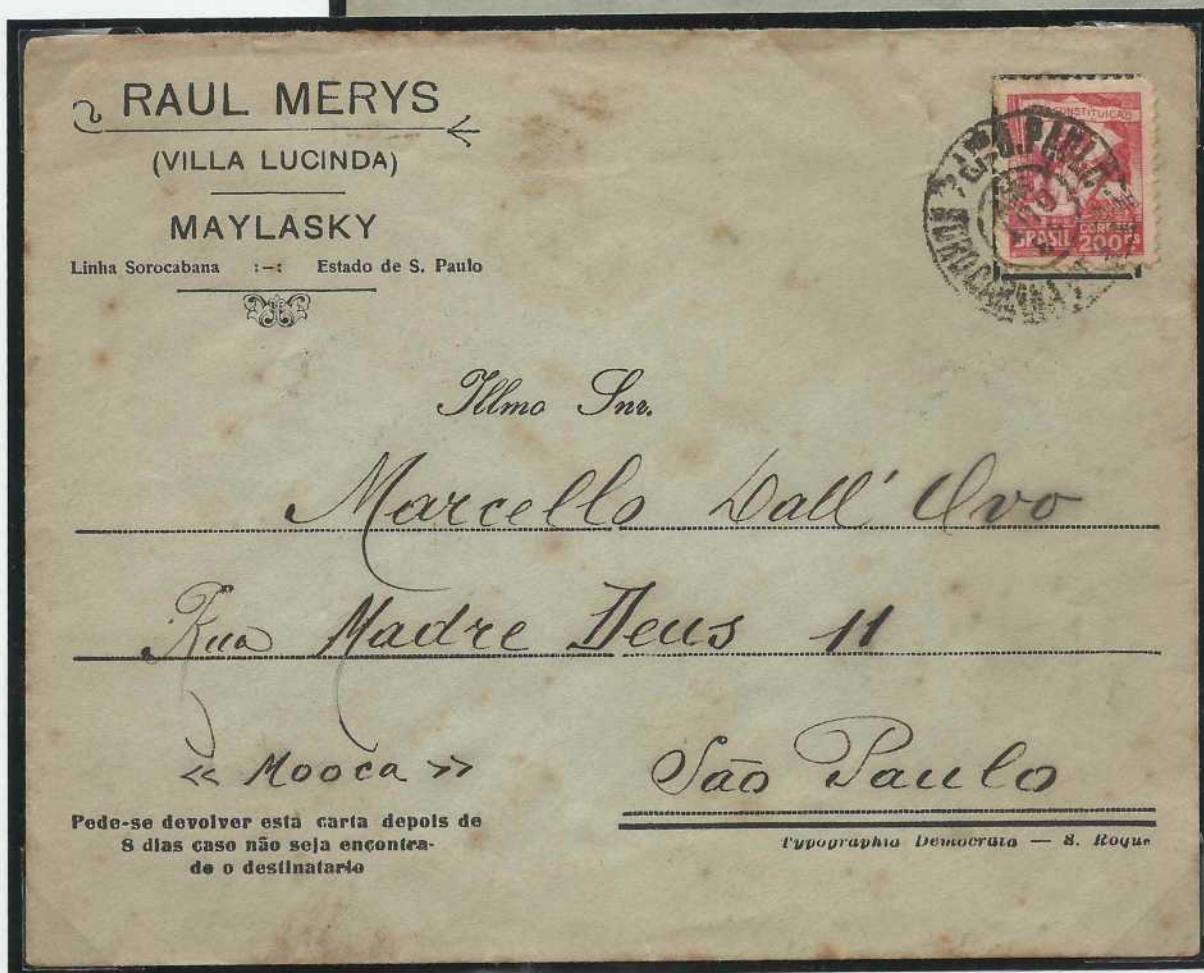 RAUL MERYS
(VILLA LUCINDA)
MAYLASKY
Linha Sorocabana :-: Estado de S. Paulo
CONSTITUIÇÃO
BRASIL 200Rs
Illmo Snr.
Marcello Dall' Ovo
Rua Madre Deus 11
« Mooca »
São Paulo
Pede-se devolver esta carta depois de
8 dias caso não seja encontra-
do o destinatario
Typographia Democrata — S. Roque